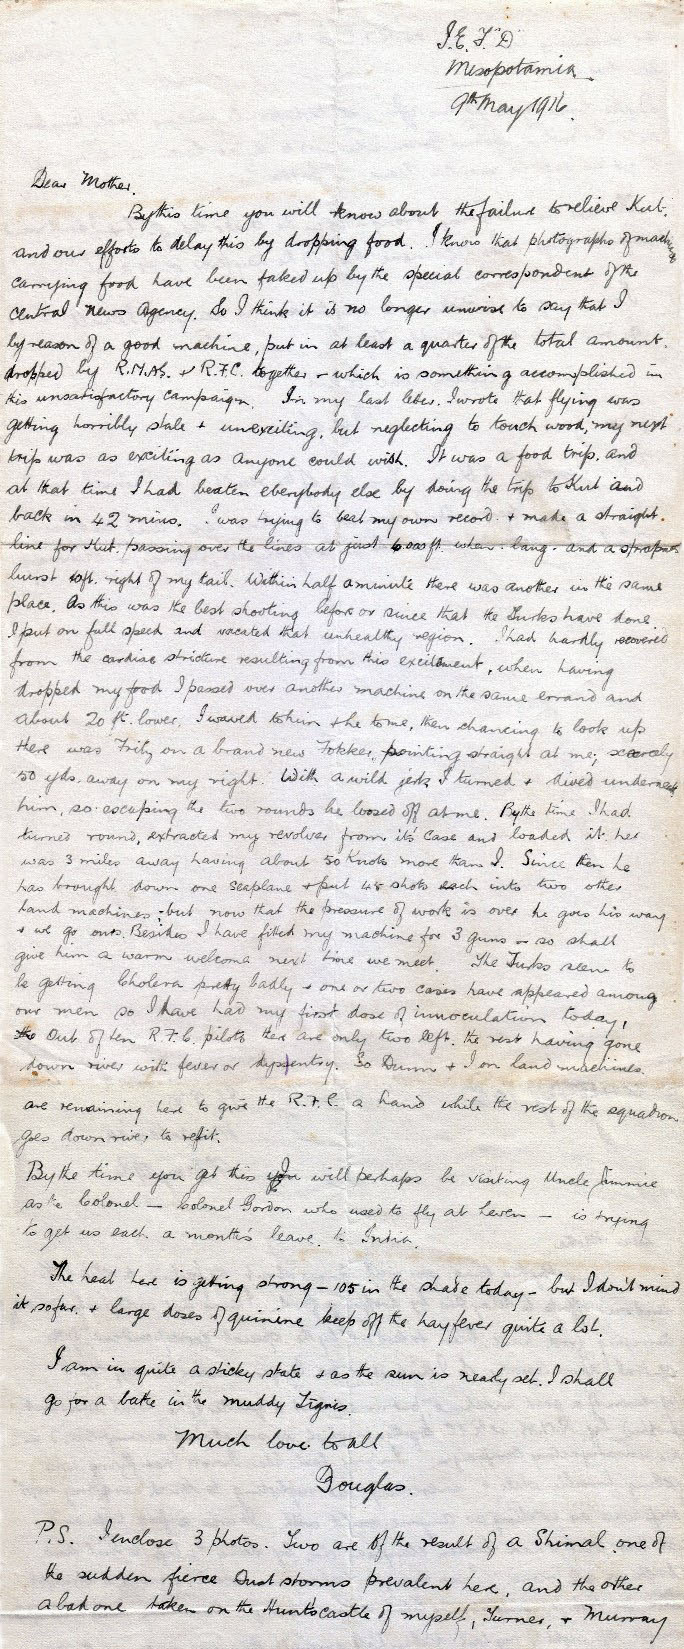 I.E.F. "D"
Mesopotamia.
9th May 1916.
Dear Mother.
By this time you will know about the failure to relieve Kut.
and our efforts to delay this by dropping food. I know that photographs of machines
carrying food have been faked up by the special correspondent of the
Central News Agency. So I think it is no longer unwise to say that I
by reason of a good machine, put in at least a quarter of the total amount.
dropped by R.N.A.S. & R.F.C. together - which is something accomplished in
this unsatisfactory campaign. In my last letter. I wrote that flying was
getting horribly stale & unexciting, but neglecting to touch wood, my next
trip was as exciting as anyone could wish. It was a food trip, and
at that time I had beaten everybody else by doing the trip to Kut and
back in 42 mins. I was trying to beat my own record & made a straight.
line for Kut. passing over the lines at just 6.000 ft. when - bang - and a
burst 10ft. right of my tail. Within half a minute there was another in the same
place. As this was the best shooting before or since that the Turks have done.
I put on full speed and vacated that unhealthy region. I had hardly recovered
from the cardiac stricture resulting from this excitement, when having
dropped my food I passed over another machine on the same errand and
about 20 ft. lower. I waved to him & he to me, then chancing to look up
there was Fritz on a brand new Fokker, pointing straight at me; scarcely
50 yds. away on my right. With a wild jerk I turned & dived underneath
him, so escaping the two rounds he loosed off at me. By the time I had
turned round, extracted my revolver from it's case and loaded it he
was 3 miles away having about 50 knots more than I. Since then he
has brought down one seaplane & put 45 shots each into two other
land machines; but now that the pressure of work is over he goes his way
& we go ours. Besides I have fitted my machine for 3 guns - so shall
give him a warm welcome next time we meet. The Turks seem to
be getting Cholera pretty badly & one or two cases have appeared among
our men so I have had my first dose of innoculation today,
Out of ten R.F.C. pilots there are only two left. the rest having gone
down river with fever or dyssentry. So Dunn & I on land machines.
are remaining here to give the R.F.C. a hand while the rest of the squadron
goes down river to refit.
By the time you get this I will perhaps be visiting Uncle Jimmie
as the Colonel - Colonel Gordon who used to fly at Leven - is trying
to get us each a month's leave. to India.
The heat here is getting strong - 105 in the shade today - but I don't mind
it so far. & large doses of quinine keep off the hayfever quite a lot.
I am in quite a sticky state & as the sun is nearly set. I shall
go for a bathe in the muddy Tigris.
Much love to all
Douglas.
P.S. I enclose 3 photos. Two are of the result of a Shimal one of
the sudden fierce Dust storms prevalent here, and the other
a bad one taken on the Huntscastle of myself, Turner, & Murray